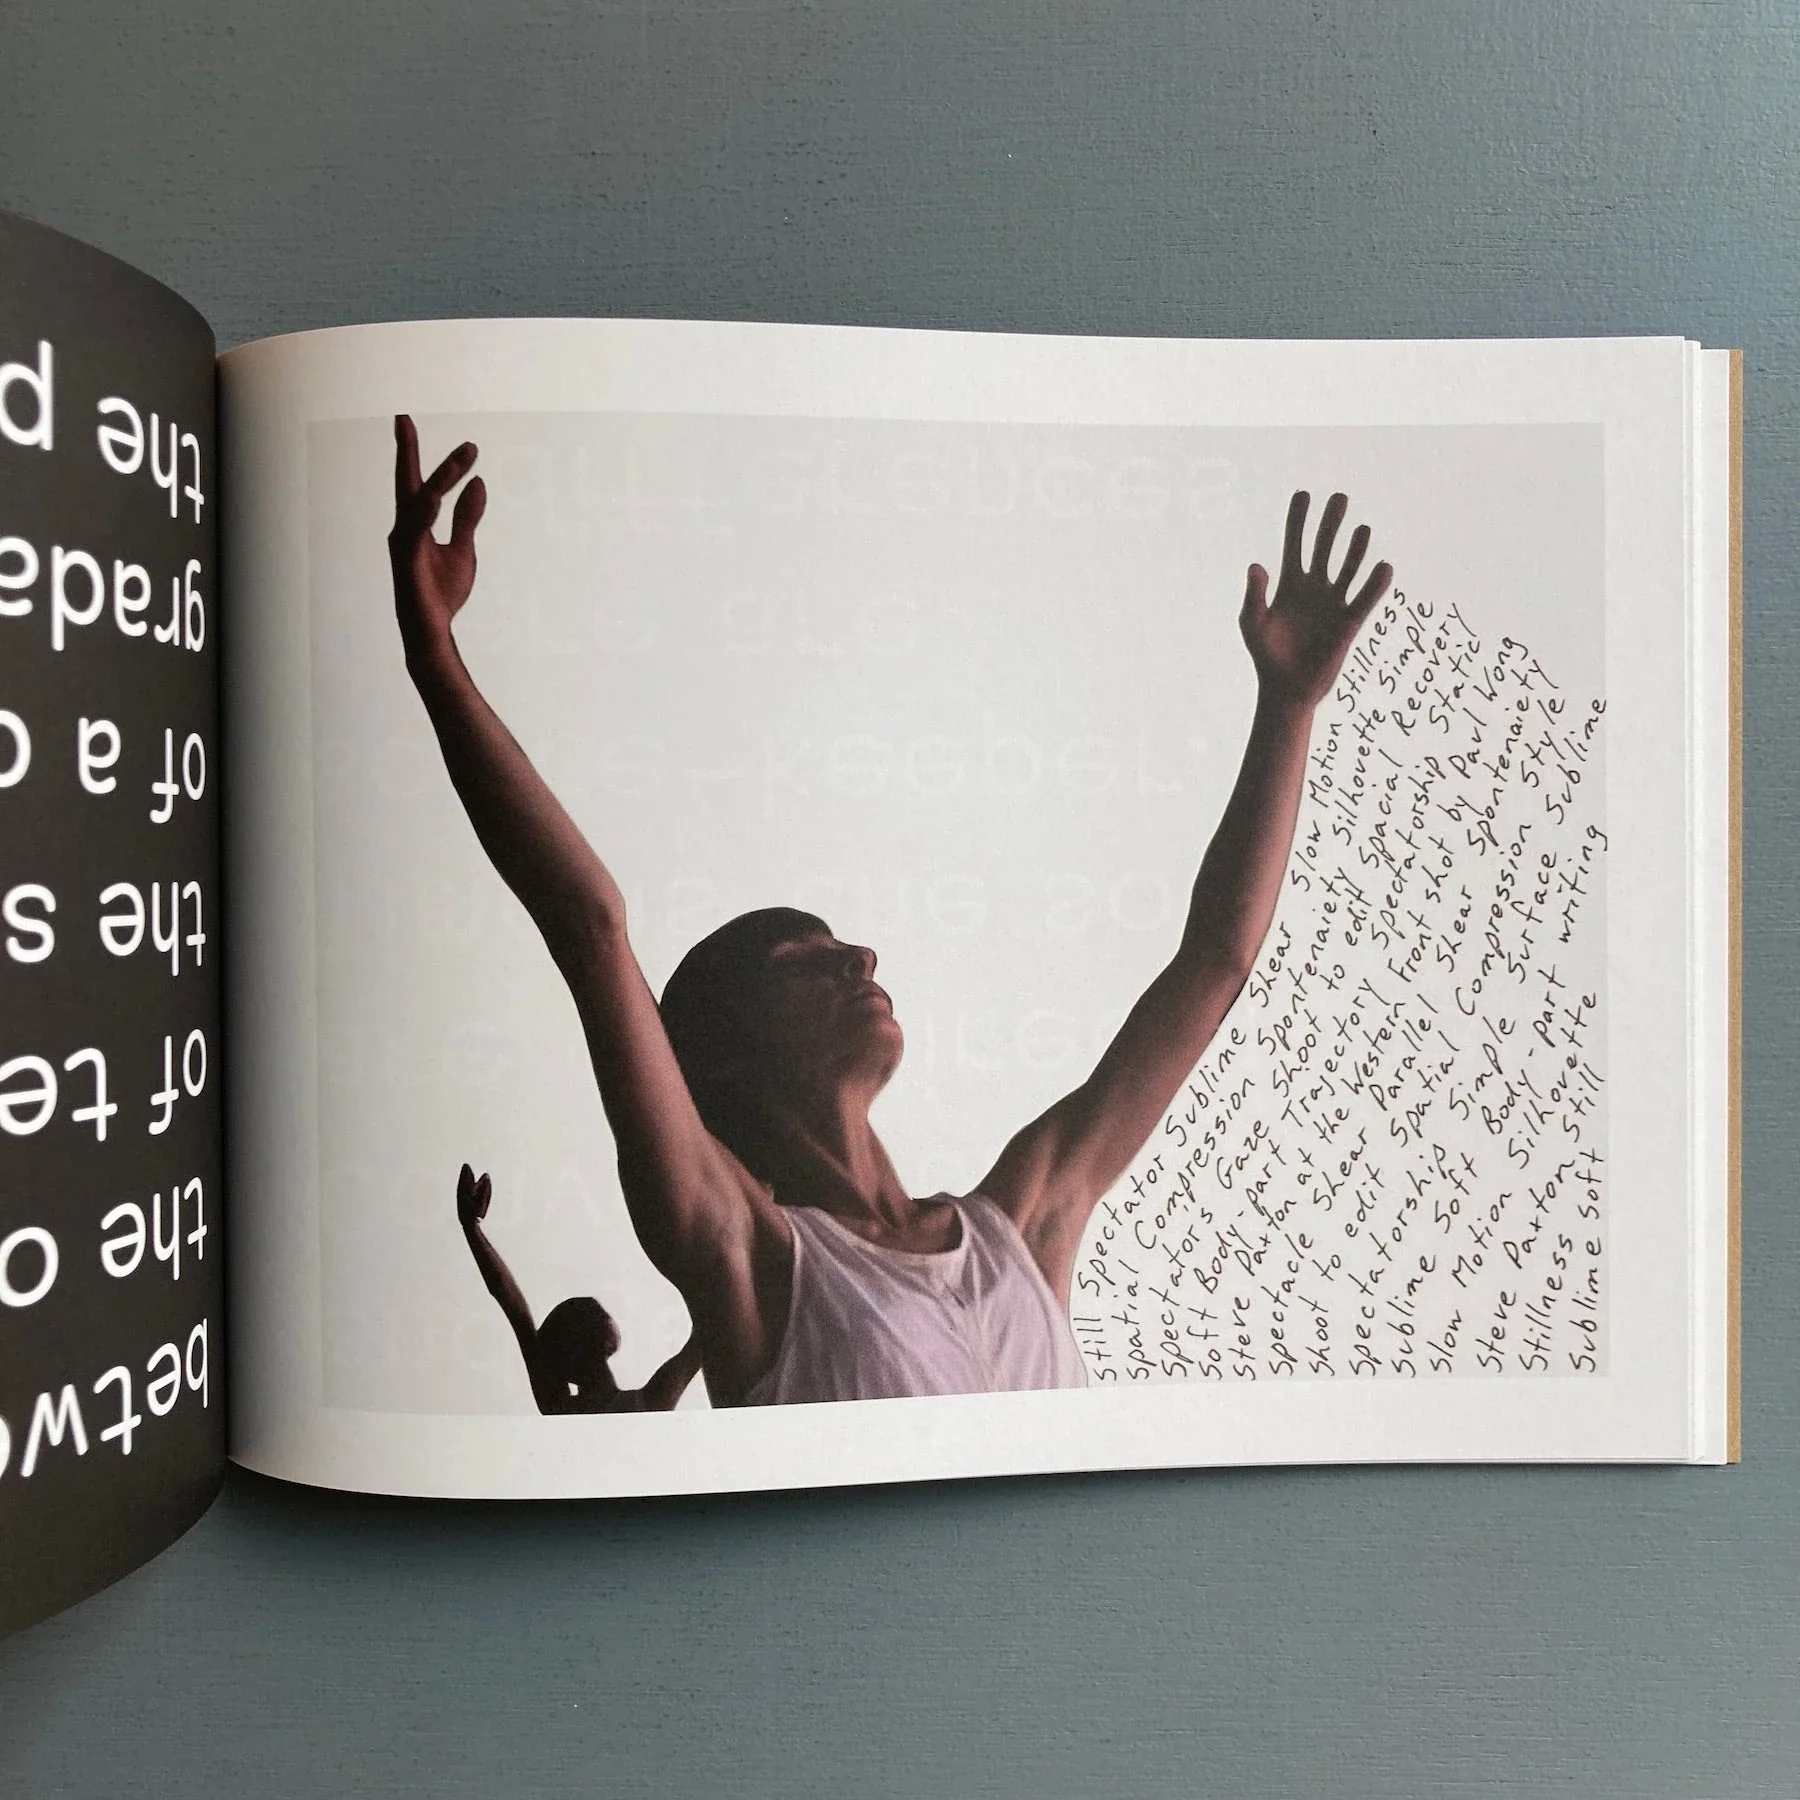 betwe
the o
of te
the s
of a c
grada
the p
Still Spectator Sublime Shear Slow Motion Stillness
Spatial Compression Spontenaiety Silhovette Simple
Spectators Gaze Shoot to edit Spacial Recovery
Soft Body-part Trajectory Spectatorship Static
Steve Paxton at the Western Front shot by Paul Wong
Spectacle Shear Parallel Shear Spontenaiety
Shoot to edit Spatial Compression Style
Spectatorship Simple Surface Sublime
Sublime Soft Body-part writing
Slow Motion Silhovette
Steve Paxton Still
Stillness
Sublime Soft